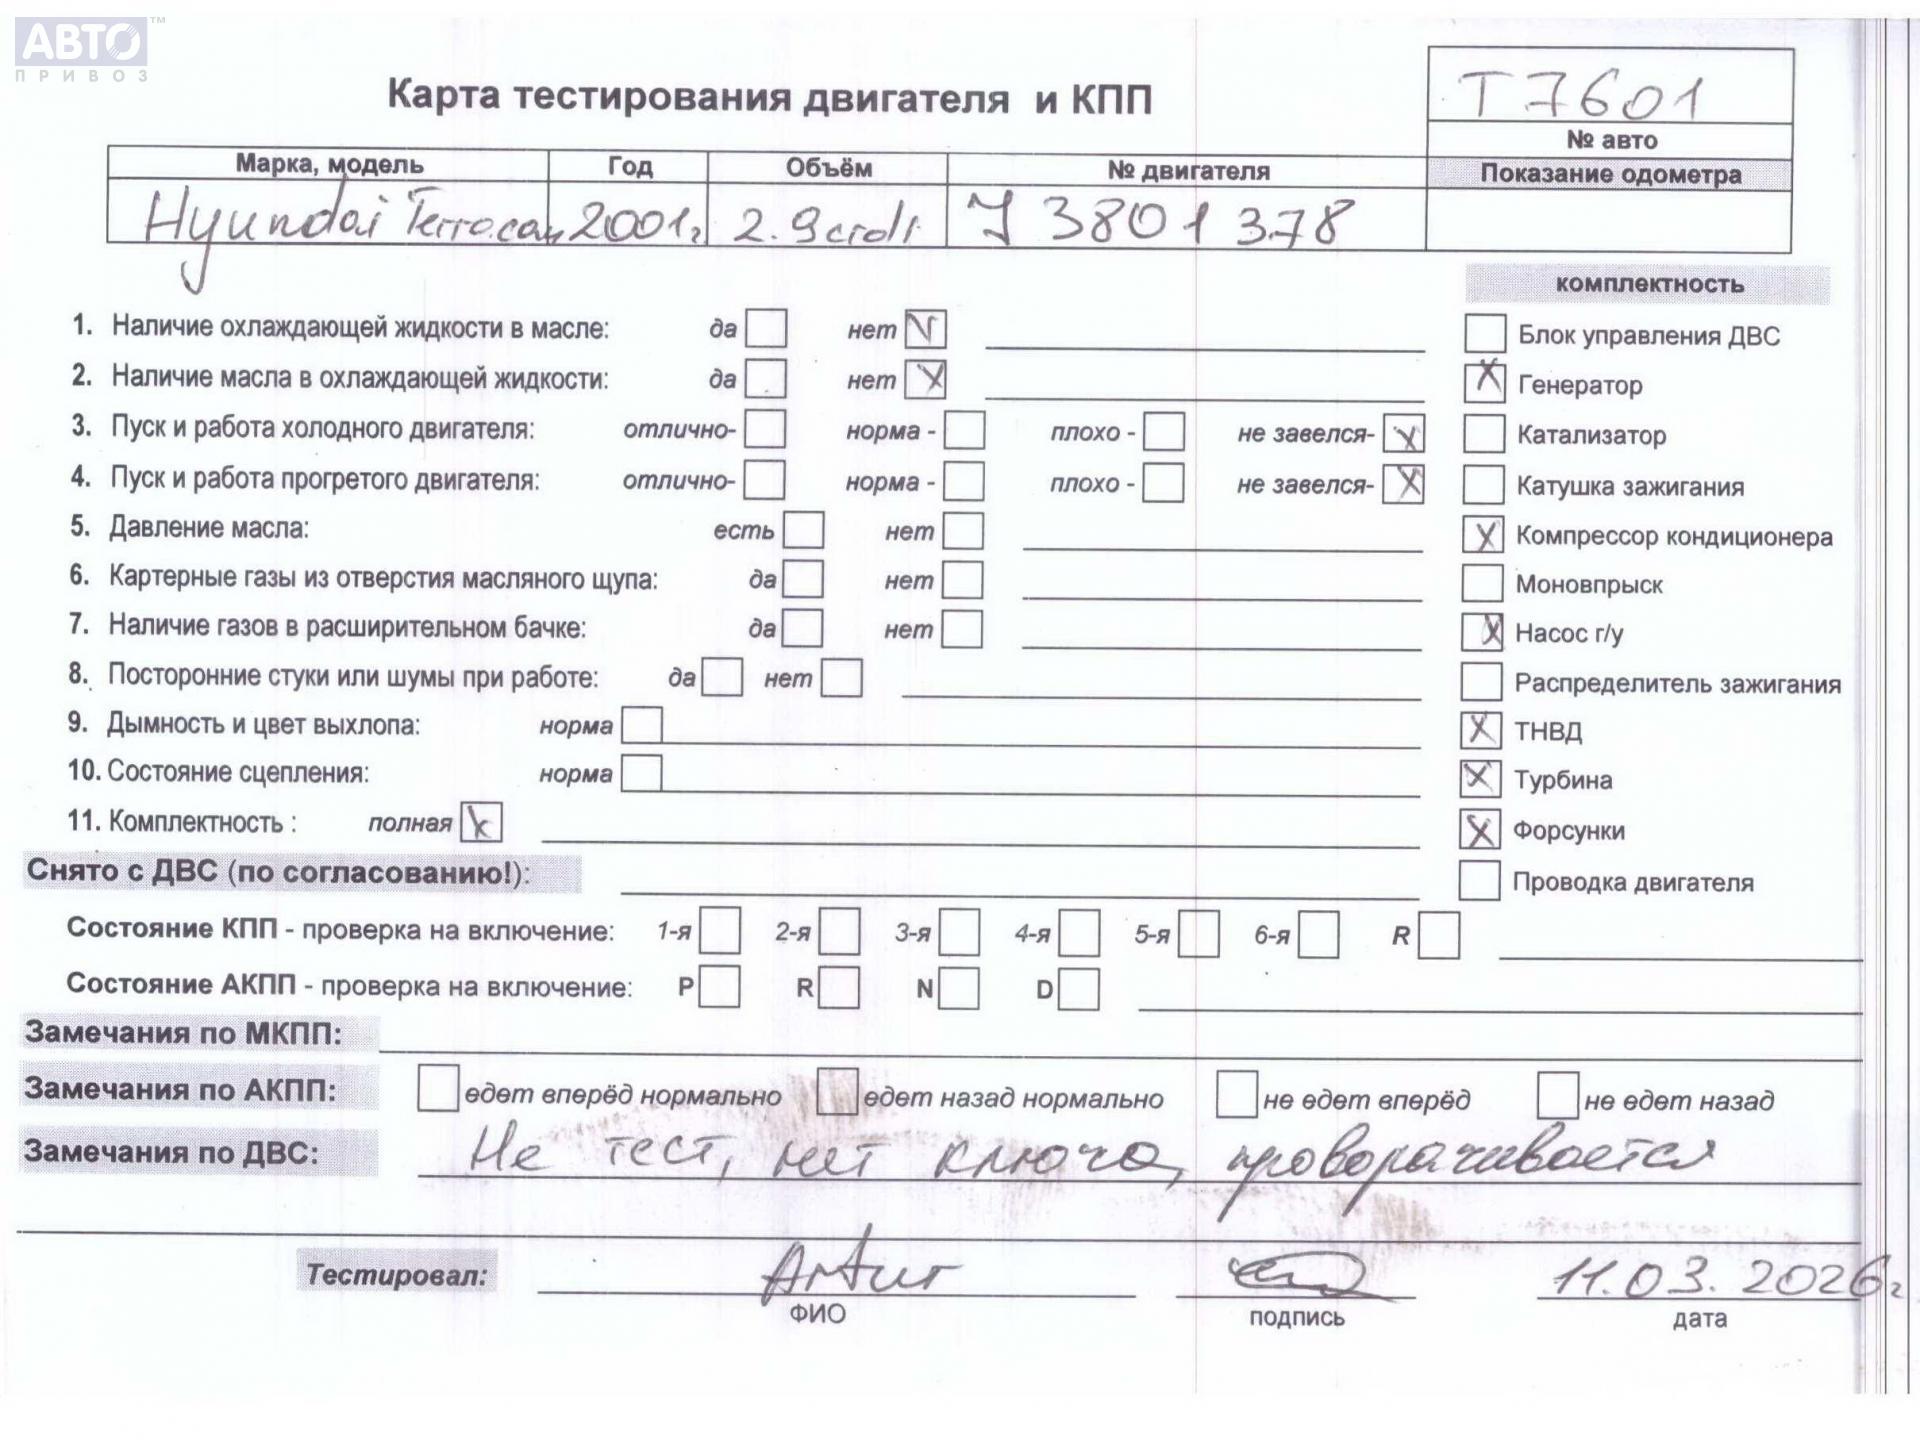 АВТО™
ПРИВОЗ
Карта тестирования двигателя и КПП
Т7601
№ авто
Марка, модель Год Объём № двигателя Показание одометра
Hyundai Terracan 2001г. 2.9crdi J3801378
комплектность
1. Наличие охлаждающей жидкости в масле: да нет V Блок управления ДВС
2. Наличие масла в охлаждающей жидкости: да нет X Генератор X
3. Пуск и работа холодного двигателя: отлично- норма - плохо - не завелся- X Катализатор
4. Пуск и работа прогретого двигателя: отлично- норма - плохо - не завелся- X Катушка зажигания
5. Давление масла: есть нет X Компрессор кондиционера
6. Картерные газы из отверстия масляного щупа: да нет Моновпрыск
7. Наличие газов в расширительном бачке: да нет X Насос г/у
8. Посторонние стуки или шумы при работе: да нет Распределитель зажигания
9. Дымность и цвет выхлопа: норма X ТНВД
10. Состояние сцепления: норма X Турбина
11. Комплектность : полная X X Форсунки
Снято с ДВС (по согласованию!): Проводка двигателя
Состояние КПП - проверка на включение: 1-я 2-я 3-я 4-я 5-я 6-я R
Состояние АКПП - проверка на включение: P R N D
Замечания по МКПП:
Замечания по АКПП: едет вперёд нормально едет назад нормально не едет вперёд не едет назад
Замечания по ДВС: Не тест, нет ключа, проворачивается
Тестировал: Artur 11.03.2026г
ФИО подпись дата